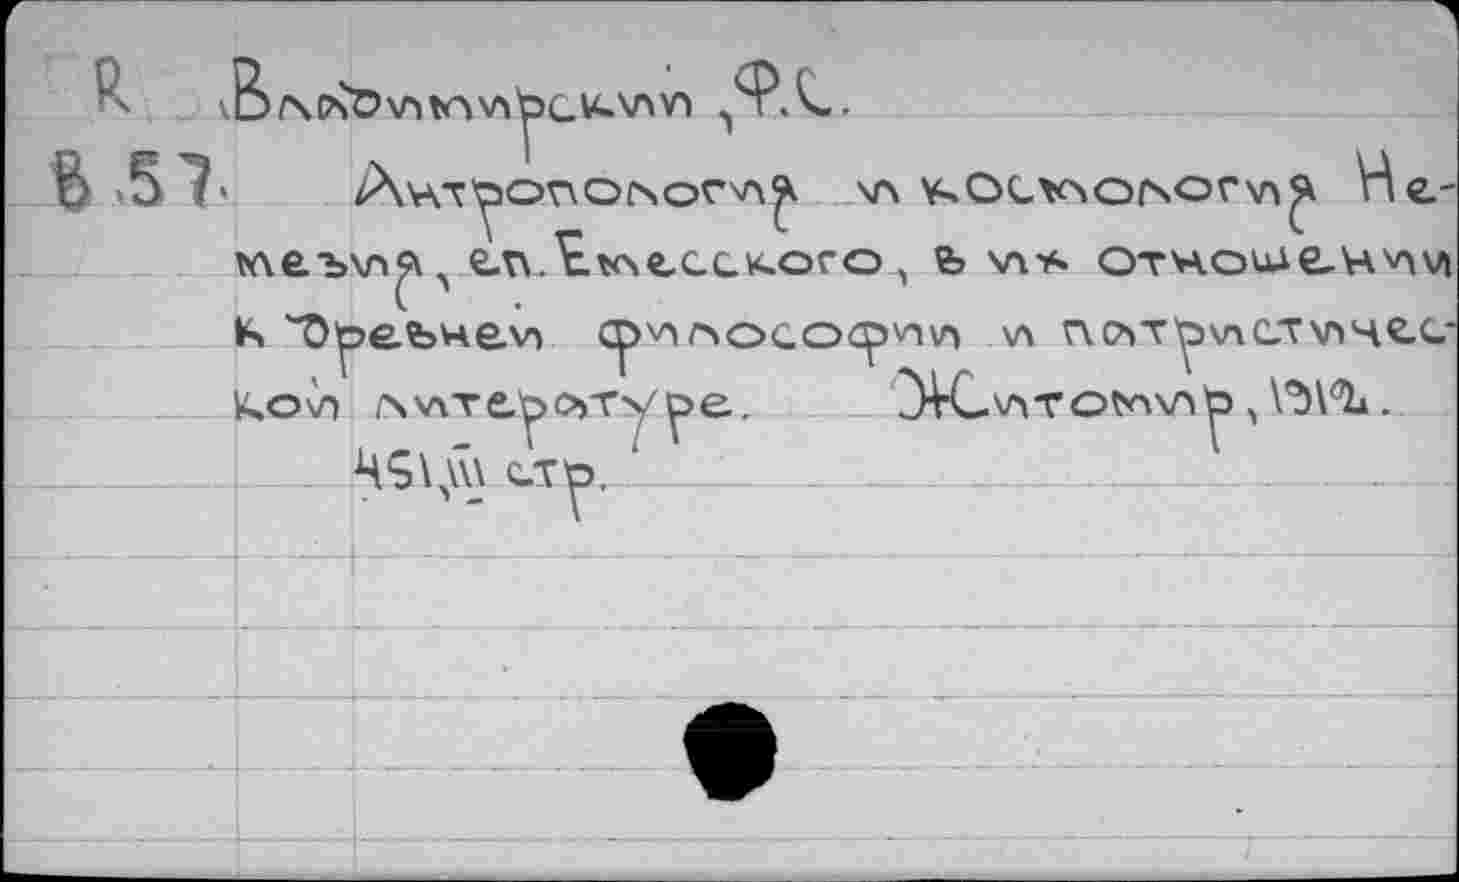 R Владимирский, Ф.С.
В.57. Антропология и космология Не-
мезия, еп. Емесского, в их отношении
к древней философии и патристичес-
кой литературе. Житомир, 1912.
451,III стр.